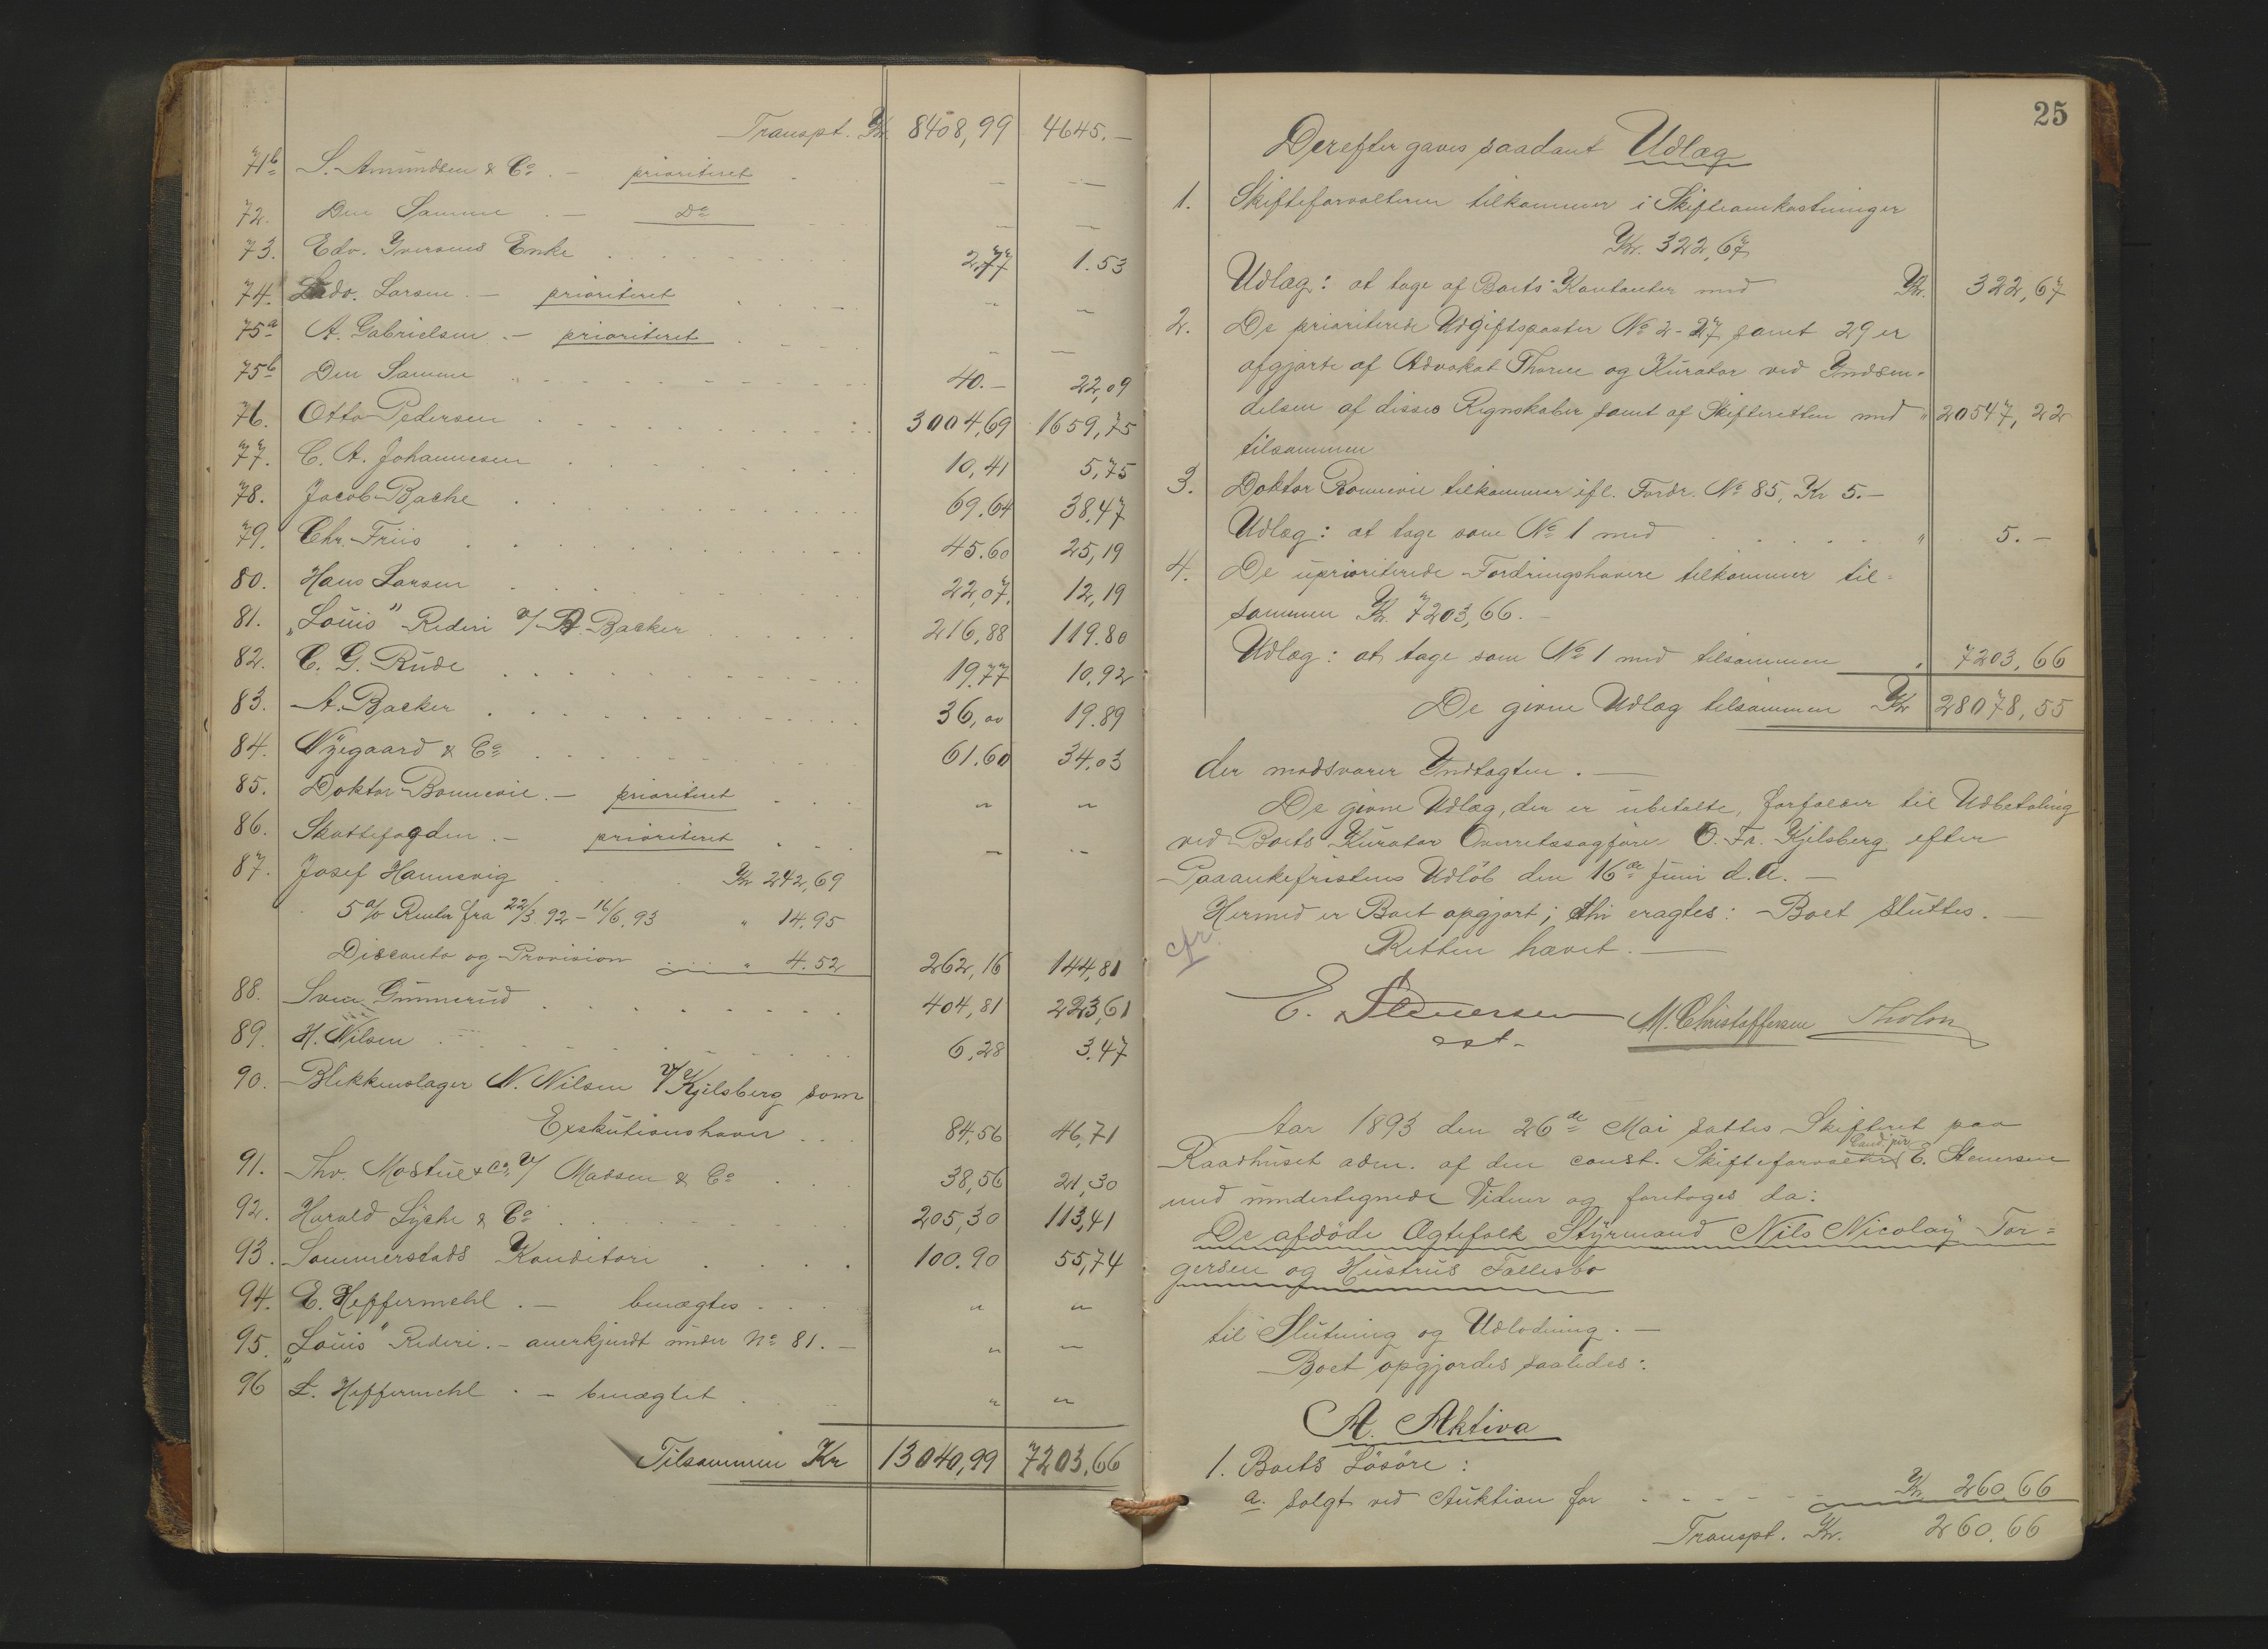 Transpt. Kr. 8408,99 4645.–
71b S. Amundsen & Co. – prioriteret – –
72. Den Samme – Do – –
73. Edv. Iversens Enke 2,77 1.53
74. Ludv. Larsen. – prioriteret – –
75a A. Gabrielsen. – prioriteret – –
75b Den Samme 40.– 22,09
76. Otto Pedersen 3004,69 1659,75
77. C. A. Johannesen 10,41 5,75
78. Jacob Bache 69.64 38.47
79. Chr. Friis 45.60 25,19
80. Hans Larsen 22,07. 12,19
81. „Louis" Rederi v/ A. Backer 216,88 119.80
82. C. G. Rude 19.77 10.92
83. A. Backer 36,00 19.89
84. Nygaard & Co 61.60 34.03
85. Doktor Bonnevie. – prioriteret " "
86. Skattefogden. – prioriteret – –
87. Josef Hannevig Kr 242,69
5 % Renter fra 22/3 92 – 16/6.93 " 14.95
Disconto og Provision " 4.52 262,16 144,81
88. Sven Gunnerud 404,81 223,61
89. H. Nilsen 6,28 3.47
90. Blikkenslager N. Nilsen v/ Kjelsberg som
Exekutionshaver 84,56 46,71
91. Thv. Mostue & Co. v/ Madsen & Co 38,56 21,30
92. Harald Lyche & Co 205,30 113,41
93. Sommerstads Konditori 100.90 55,74
94. E. Heffermehl. – benægtes " "
95. „Louis" Rederi. – anerkjendt under No 81. – " –
96 L. Heffermehl. – benægtet " "
Tilsammen Kr 13040,99 7203,66
25
Derefter gaves saadant Udlæg
1. Skifteforvalteren tilkommer i Skifteomkostninger
Kr. 322,67
Udlæg: at tage af Boets Kontanter med Kr. 322,67
2. De prioriterede Udgiftsposter No 2-27 samt 29 er
afgjorte af Advokat Thorne og Kurator ved Indsen-
delsen af disses Regnskaber samt af Skifteretten med " 20547,22
tilsammen
3. Doktor Bonnevie tilkommer ifl. Fordr. No 85, Kr 5.–
Udlæg: at tage som No 1 med " 5.–
4. De uprioriterede Fordringshavere tilkommer til=
sammen Kr. 7203,66.–
Udlæg: at tage som No 1 med tilsammen " 7203,66
De givne Udlæg tilsammen Kr 28078,55
der modsvarer Indtægten. –
De givne Udlæg, der er ubetalte, forfalder til Udbetaling
ved Boets Kurator Overretssagfører O. Fr. Kjelsberg efter
Paaankefristens Udløb den 16de Juni d.A. –
Hermed er Boet opgjort; thi eragtes: Boet sluttes. –
cfr. Retten hævet. –
E. Stenersen M. Christoffersen Tholon
cst.
Aar 1893 den 26de Mai sattes Skifteret paa
Raadhuset adm. af den const. Skifteforvalter cand. jur. E. Stenersen
med undertegnede Vidner og foretoges da:
De afdøde Ægtefolk Styrmand Nils Nicolay Tor=
gersen og Hustrus Fællesbo
til Slutning og Udlodning. –
Boet opgjordes saaledes:
A. Aktiva
1. Boets Løsøre:
a. solgt ved Auktion for Kr. 260.66
Transpt. Kr. 260.66